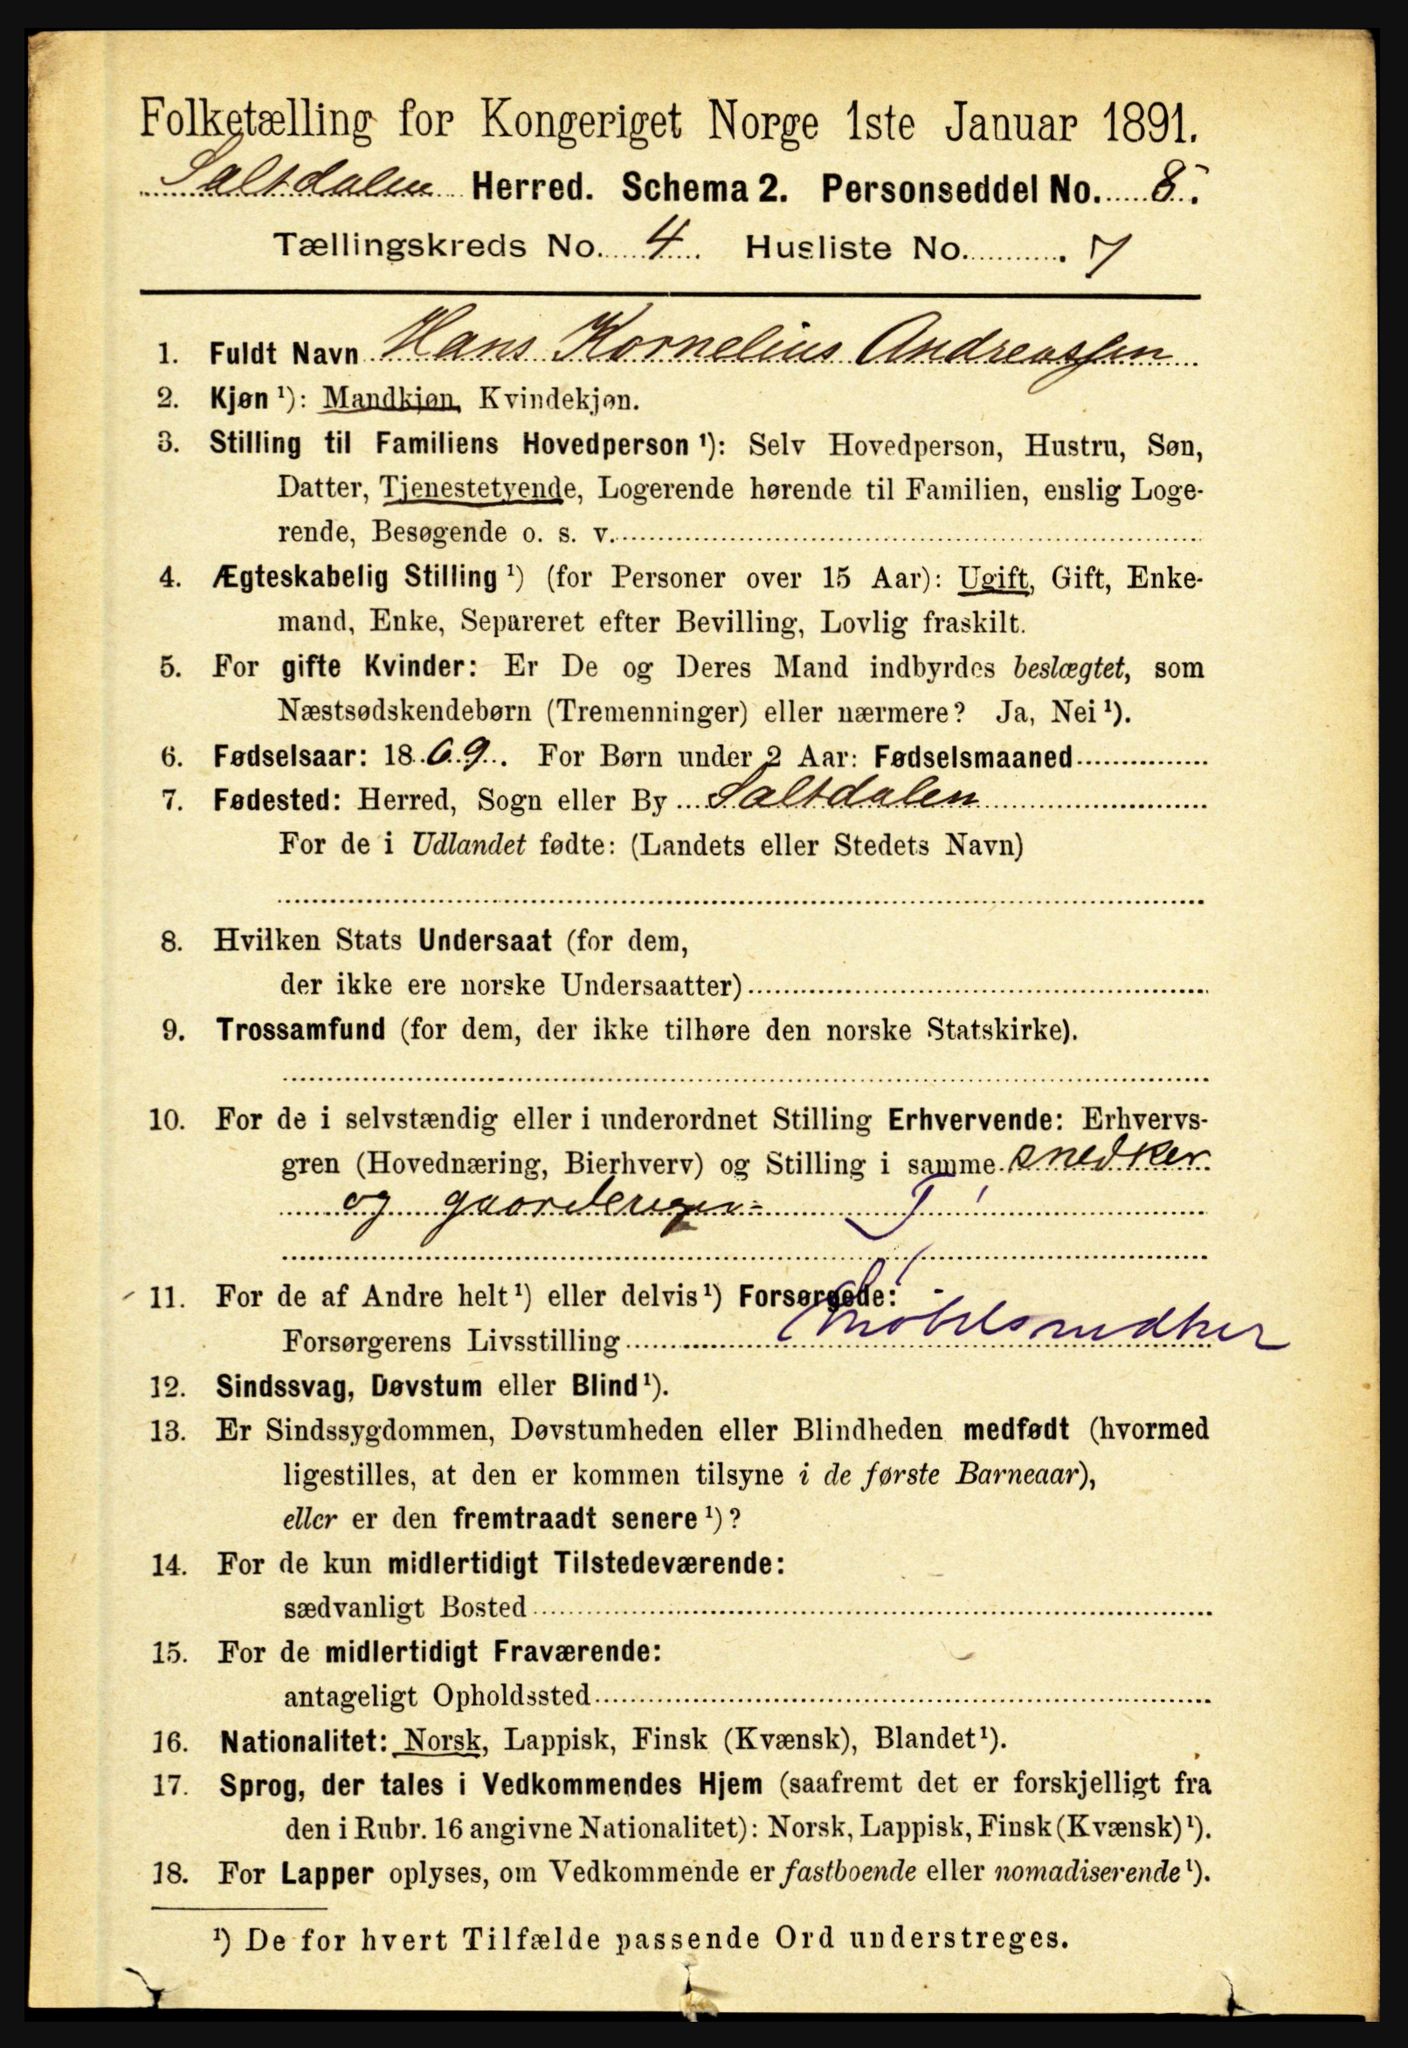 Folketælling for Kongeriget Norge 1ste Januar 1891.
Saltdalen Herred. Schema 2. Personseddel No. 8.
Tællingskreds No. 4. Husliste No. 7
1. Fuldt Navn Hans Kornelius Andreassen
2. Kjøn ¹): Mandkjøn, Kvindekjøn.
3. Stilling til Familiens Hovedperson ¹): Selv Hovedperson, Hustru, Søn,
Datter, Tjenestetyende, Logerende hørende til Familien, enslig Loge-
rende, Besøgende o. s. v.
4. Ægteskabelig Stilling ¹) (for Personer over 15 Aar): Ugift, Gift, Enke-
mand, Enke, Separeret efter Bevilling, Lovlig fraskilt.
5. For gifte Kvinder: Er De og Deres Mand indbyrdes beslægtet, som
Næstsødskendebørn (Tremenninger) eller nærmere? Ja, Nei ¹).
6. Fødselsaar: 1869. For Børn under 2 Aar: Fødselsmaaned
7. Fødested: Herred, Sogn eller By Saltdalen
For de i Udlandet fødte: (Landets eller Stedets Navn)
8. Hvilken Stats Undersaat (for dem,
der ikke ere norske Undersaatter)
9. Trossamfund (for dem, der ikke tilhøre den norske Statskirke).
10. For de i selvstændig eller i underordnet Stilling Erhvervende: Erhvervs-
gren (Hovednæring, Bierhverv) og Stilling i samme snedker
og T
11. For de af Andre helt ¹) eller delvis ¹) Forsørgede:
Forsørgerens Livsstilling Møbelsnedker
12. Sindssvag, Døvstum eller Blind ¹).
13. Er Sindssygdommen, Døvstumheden eller Blindheden medfødt (hvormed
ligestilles, at den er kommen tilsyne i de første Barneaar),
eller er den fremtraadt senere ¹)?
14. For de kun midlertidigt Tilstedeværende:
sædvanligt Bosted
15. For de midlertidigt Fraværende:
antageligt Opholdssted
16. Nationalitet: Norsk, Lappisk, Finsk (Kvænsk), Blandet ¹).
17. Sprog, der tales i Vedkommendes Hjem (saafremt det er forskjelligt fra
den i Rubr. 16 angivne Nationalitet): Norsk, Lappisk, Finsk (Kvænsk) ¹).
18. For Lapper oplyses, om Vedkommende er fastboende eller nomadiserende ¹).
¹) De for hvert Tilfælde passende Ord understreges.